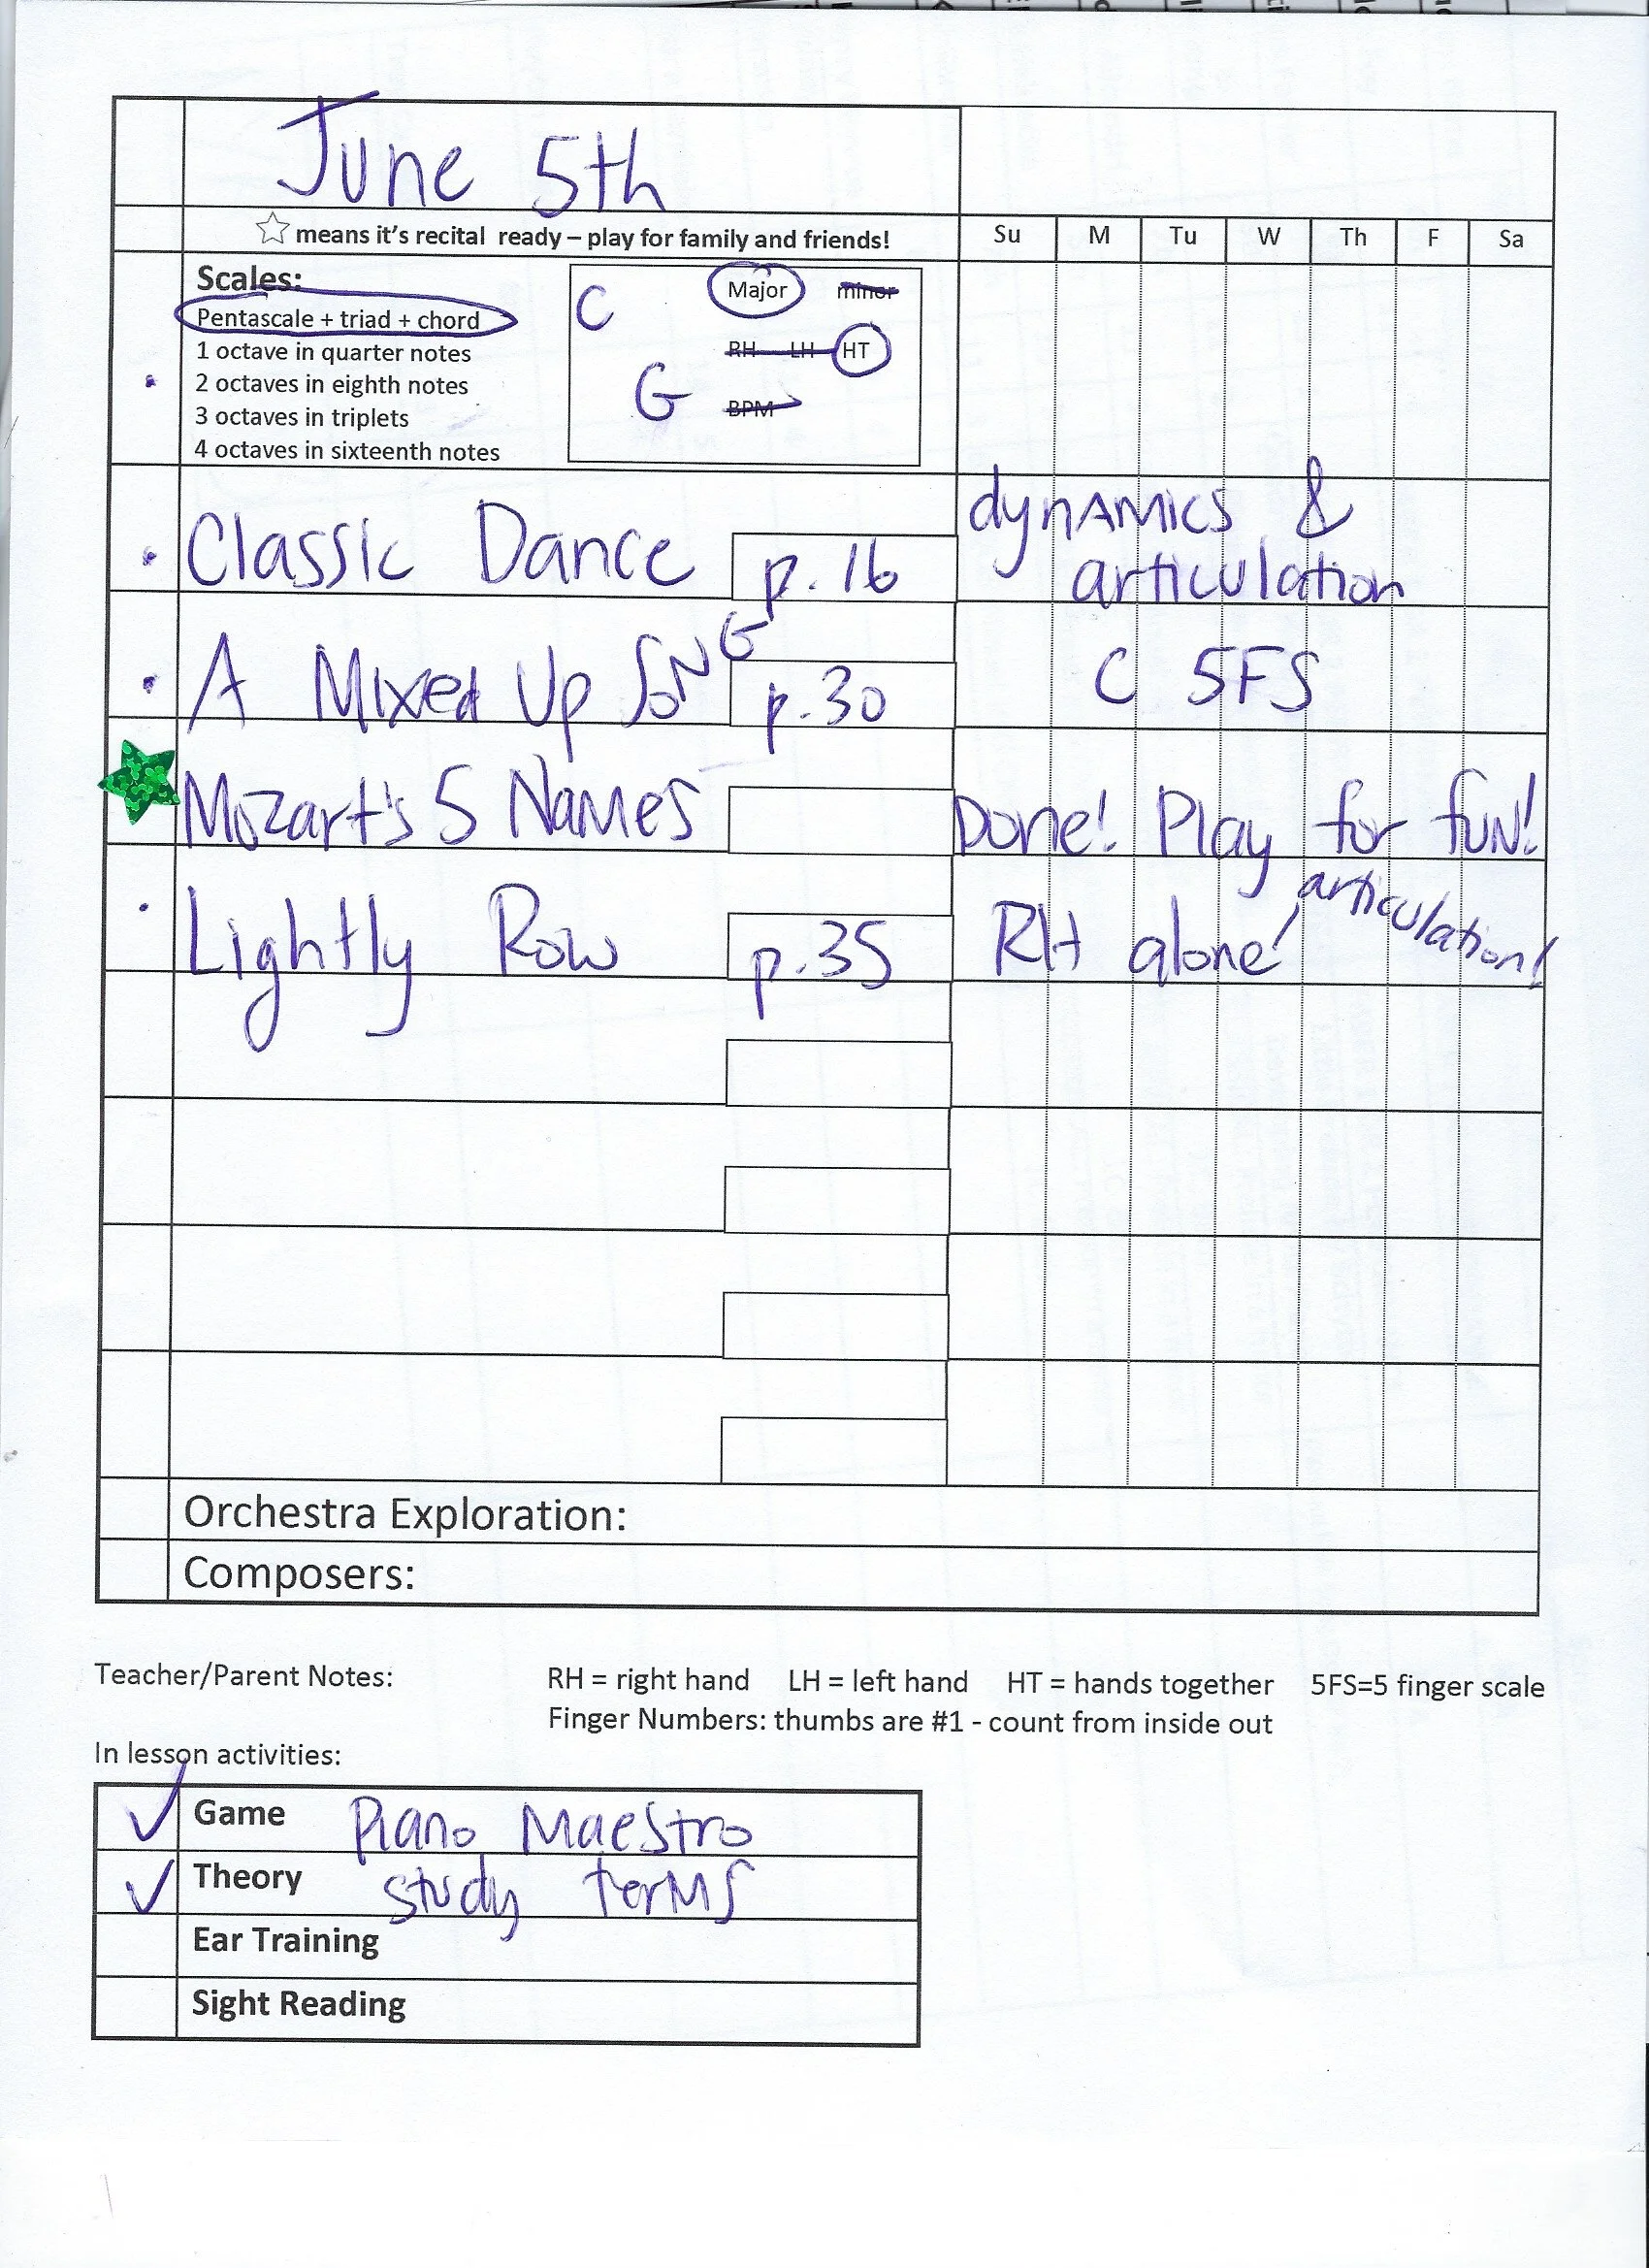 June 5th
☆ means it's recital ready – play for family and friends!
Su M Tu W Th F Sa
Scales:
Pentascale + triad + chord
1 octave in quarter notes
2 octaves in eighth notes
3 octaves in triplets
4 octaves in sixteenth notes
C Major minor
RH LH HT
G BPM
Classic Dance p. 16 dynamics & articulation
A Mixed Up Song p. 30 C 5FS
Mozart's 5 Names Done! Play for fun!
Lightly Row p. 35 RH alone! articulation!
Orchestra Exploration:
Composers:
Teacher/Parent Notes: RH = right hand LH = left hand HT = hands together 5FS=5 finger scale
Finger Numbers: thumbs are #1 - count from inside out
In lesson activities:
Game Piano Maestro
Theory study terms
Ear Training
Sight Reading